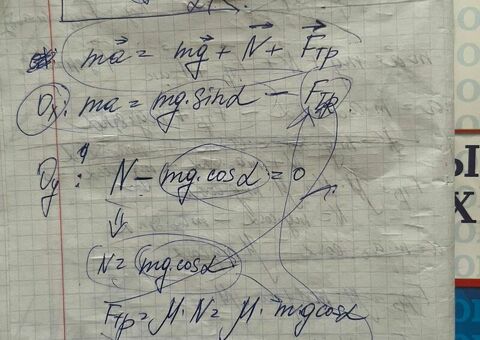 ma⃗ = mg⃗ + N⃗ + F⃗тр
Ox: ma = mg·sinα − Fтр
Oy: N − mg·cosα = 0
⇓
N = mg·cosα
Fтр = μ·N = μ·mgcosα
Ы
Х